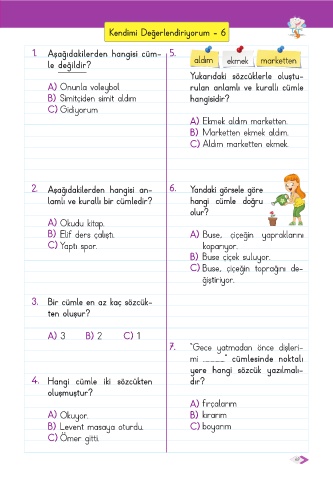 Kendimi Değerlendiriyorum - 6
1. Aşağıdakilerden hangisi cüm-
le değildir?
A) Onunla voleybol.
B) Simitçiden simit aldım.
C) Gidiyorum.
2. Aşağıdakilerden hangisi an-
lamlı ve kurallı bir cümledir?
A) Okudu kitap.
B) Elif ders çalıştı.
C) Yaptı spor.
3. Bir cümle en az kaç sözcük-
ten oluşur?
A) 3 B) 2 C) 1
4. Hangi cümle iki sözcükten
oluşmuştur?
A) Okuyor.
B) Levent masaya oturdu.
C) Ömer gitti.
5. aldım ekmek marketten
Yukarıdaki sözcüklerle oluştu-
rulan anlamlı ve kurallı cümle
hangisidir?
A) Ekmek aldım marketten.
B) Marketten ekmek aldım.
C) Aldım marketten ekmek.
6. Yandaki görsele göre
hangi cümle doğru
olur?
A) Buse, çiçeğin yapraklarını
koparıyor.
B) Buse çiçek suluyor.
C) Buse, çiçeğin toprağını de-
ğiştiriyor.
7. "Gece yatmadan önce dişleri-
mi _____" cümlesinde noktalı
yere hangi sözcük yazılmalı-
dır?
A) fırçalarım
B) kırarım
C) boyarım